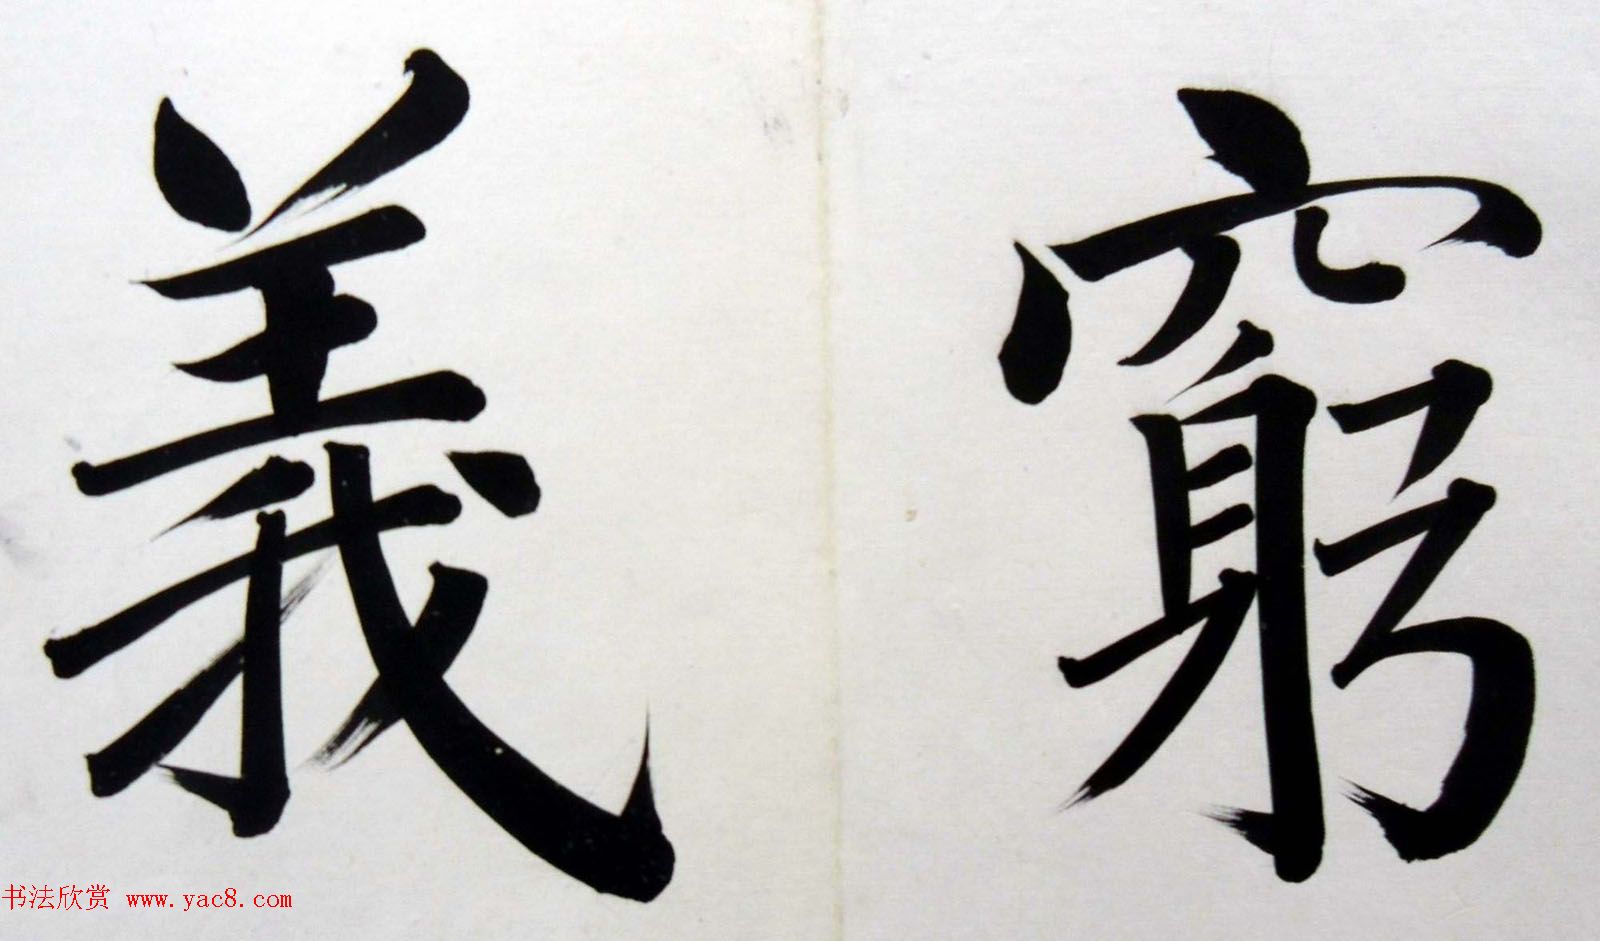 窮
義
书法欣赏 www.yac8.com